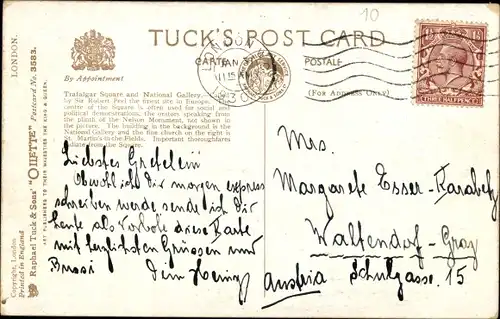 10
TUCK'S POST CARD
CARTE POSTALE
(FOR ADDRESS ONLY)
By Appointment
Trafalgar Square and National Gallery.
by Sir Robert Peel the finest site in Europe.
centre of the Square is often used for social and
political demonstrations; the orators speaking from
the plinth of the Nelson Monument, not shown in
the picture. The building in the background is the
National Gallery and the fine church on the right is
St. Martin's-in-the-Fields. Important thoroughfares
radiate from the Square.
LONDON
JAN
11 15 AM
THREE HALFPENCE
LONDON.
Raphael Tuck & Sons' "OILETTE" Postcard No. 3583.
ART PUBLISHERS TO THEIR MAJESTIES THE KING & QUEEN.
Copyright, London
Printed in England
Liebstes Gretelein!
Obwohl ich Dir morgen express
schreiben werde sende ich Dir
heute als Vorbote diese Karte
mit herzlichsten Grüssen und
Bussi Dein
Mrs.
Margarete Esser-Karabetz
Waltendorf-Graz
Schulgasse 15
Austria